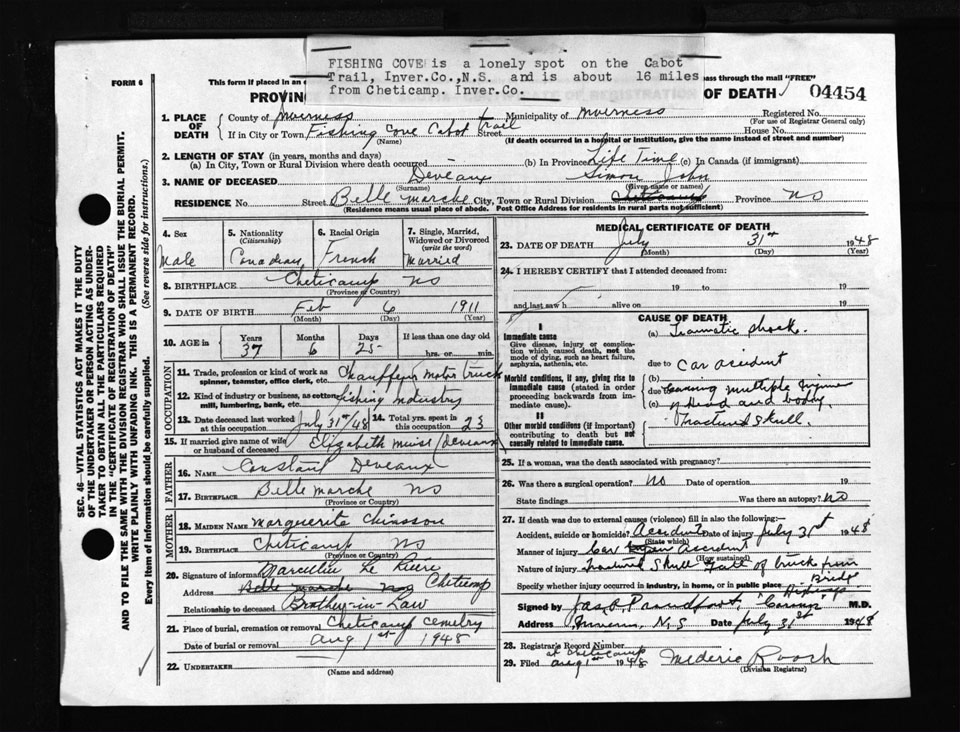 FISHING COVE is a lonely spot on the Cabot
Trail, Inver.Co.,N.S. and is about 16 miles
from Cheticamp. Inver.Co.
FORM 6
This form if placed in an
pass through the mail "FREE"
PROVIN
OF DEATH
04454
1. PLACE OF DEATH
County of Inverness
Municipality of Inverness
Registered No.
(For use of Registrar General only)
If in City or Town Fishing Cove Cabot Trail Street
House No.
(Name)
(If death occurred in a hospital or institution, give the name instead of street and number)
2. LENGTH OF STAY (in years, months and days)
(a) In City, Town or Rural Division where death occurred - (b) In Province Life Time (c) In Canada (if immigrant)
3. NAME OF DECEASED Deveaux Simon John
(Surname) (Given name or names)
RESIDENCE No. Street Belle Marche City, Town or Rural Division Cheticamp Province NS
(Residence means usual place of abode. Post Office Address for residents in rural parts not sufficient)
4. Sex
Male
5. Nationality
(Citizenship)
Canadian
6. Racial Origin
French
7. Single, Married, Widowed or Divorced
(write the word)
Married
8. BIRTHPLACE Cheticamp NS
(Province or Country)
9. DATE OF BIRTH Feb 6 1911
(Month) (Day) (Year)
10. AGE in
Years Months Days If less than one day old
37 6 25 hrs. or min.
OCCUPATION
11. Trade, profession or kind of work as spinner, teamster, office clerk, etc. Chauffeur Motor truck
12. Kind of industry or business, as cotton mill, lumbering, bank, etc. fishing Industry
13. Date deceased last worked at this occupation July 31st/48
14. Total yrs. spent in this occupation 23
15. If married give name of wife or husband of deceased Elizabeth Muise (Deveaux)
FATHER
16. NAME Constant Deveaux
17. BIRTHPLACE Belle Marche NS
(Province or Country)
MOTHER
18. MAIDEN NAME Marguerite Chiasson
19. BIRTHPLACE Cheticamp NS
(Province or Country)
20. Signature of informant Marcellin
Address Belle marche NS Cheticamp
Relationship to deceased Brother-in-Law
21. Place of burial, cremation or removal Cheticamp cemetry
Date of burial or removal Aug 1st 1948
22. UNDERTAKER
(Name and address)
MEDICAL CERTIFICATE OF DEATH
23. DATE OF DEATH July 31st 1948
(Month) (Day) (Year)
24. I HEREBY CERTIFY that I attended deceased from:
19 to 19
and last saw h alive on 19
CAUSE OF DEATH
I
Immediate cause
Give disease, injury or complication which caused death, not the mode of dying, such as heart failure, asphyxia, asthenia, etc.
(a) Traumatic shock.
due to car accident
Morbid conditions, if any, giving rise to immediate cause (stated in order proceeding backwards from immediate cause).
(b)
due to causing multiple
(c) of head and body
II
Other morbid conditions (if important) contributing to death but not causally related to immediate cause.
Fractured skull.
25. If a woman, was the death associated with pregnancy?
26. Was there a surgical operation? NO Date of operation 19
State findings Was there an autopsy? NO
27. If death was due to external causes (violence) fill in also the following:—
Accident, suicide or homicide? Accident Date of injury July 31st 1948
(State which)
Manner of injury Car accident
(How sustained)
Nature of injury fractured skull Fall of truck from Bridge
Specify whether injury occurred in industry, in home, or in public place Highway
Signed by Jas. "Coroner" M.D.
Address Inverness, N.S. Date July 31st 1948
28. Registrar's Record Number
at Cheticamp
29. Filed Aug 1st 1948 Mederic Roach
(Division Registrar)
SEC. 46—VITAL STATISTICS ACT MAKES IT THE DUTY
OF THE UNDERTAKER OR PERSON ACTING AS UNDER-
TAKER TO OBTAIN ALL THE PARTICULARS REQUIRED
IN THE "CERTIFICATE OF REGISTRATION OF DEATH"
AND TO FILE THE SAME WITH THE DIVISION REGISTRAR WHO SHALL ISSUE THE BURIAL PERMIT.
WRITE PLAINLY WITH UNFADING INK. THIS IS A PERMANENT RECORD.
Every item of Information should be carefully supplied. (See reverse side for instructions.)